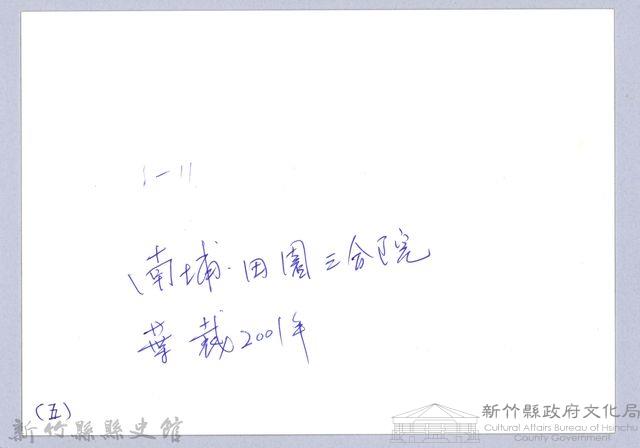 1-11
南埔.田園三合院
葉裁2001年
(五)
新竹縣縣史館
新竹縣政府文化局
Cultural Affairs Bureau of Hsinchu
County Government